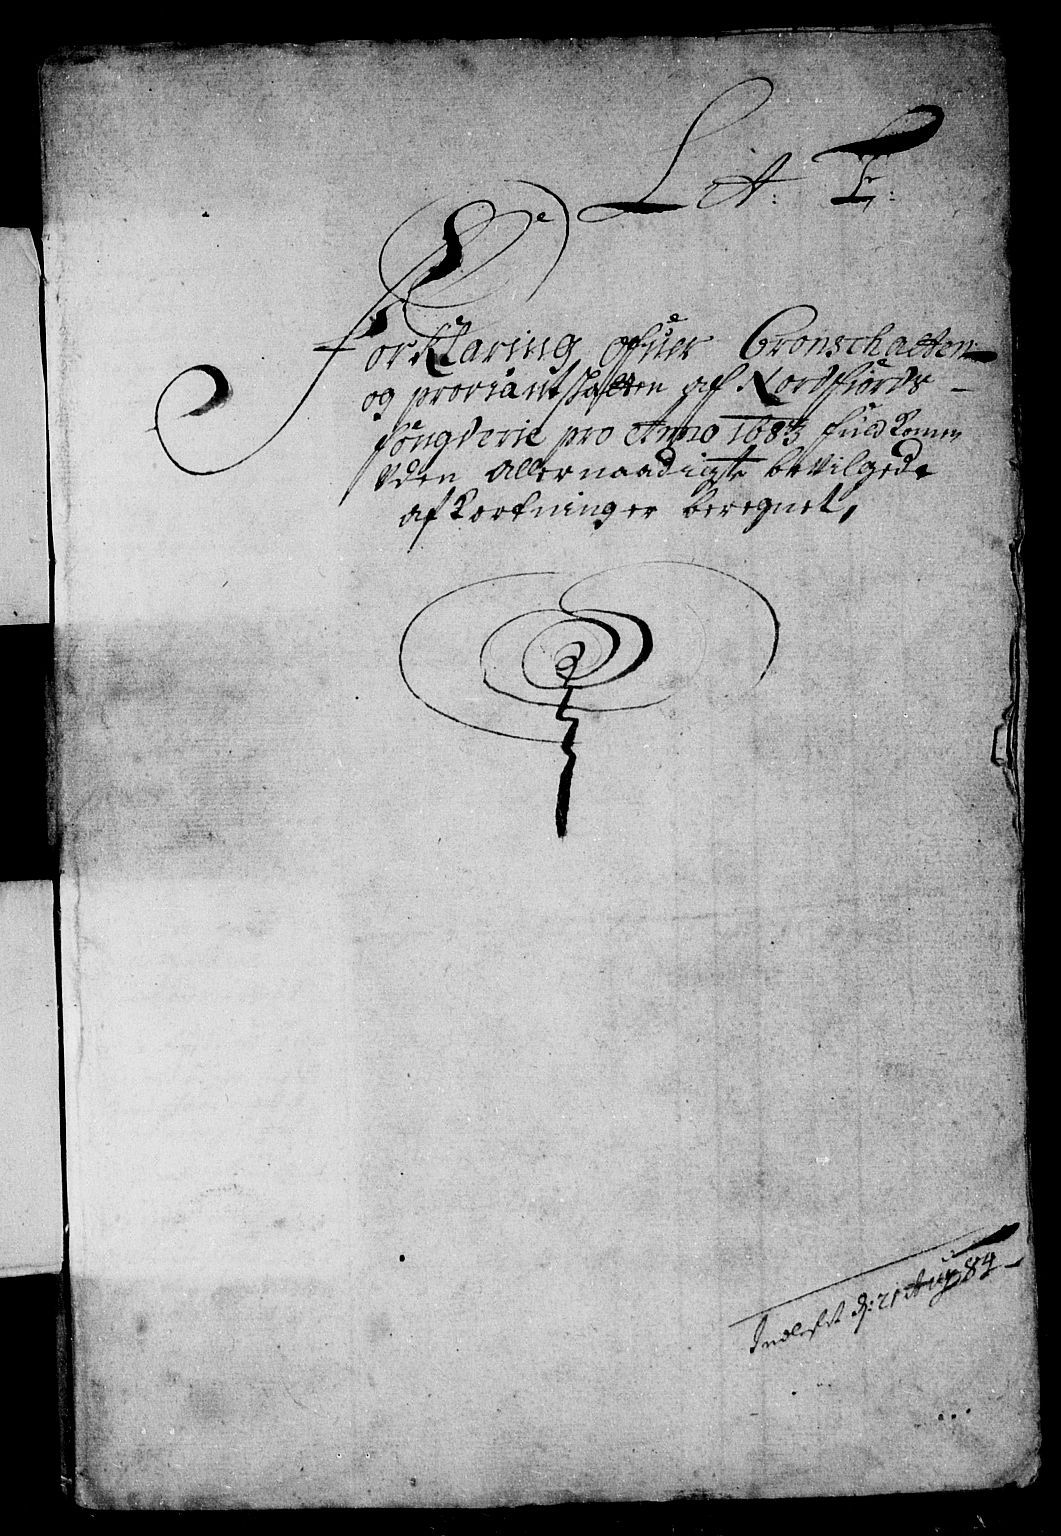 Lit: F:
Forklaring offuer Cronschatten
og proviantskatten af Nordfiords
fougderie pro Anno 1683 fuldkommen
uden allernaadigste bevilgede
afkortninger beregnet,
Indlefret d: 21 Aug: 84